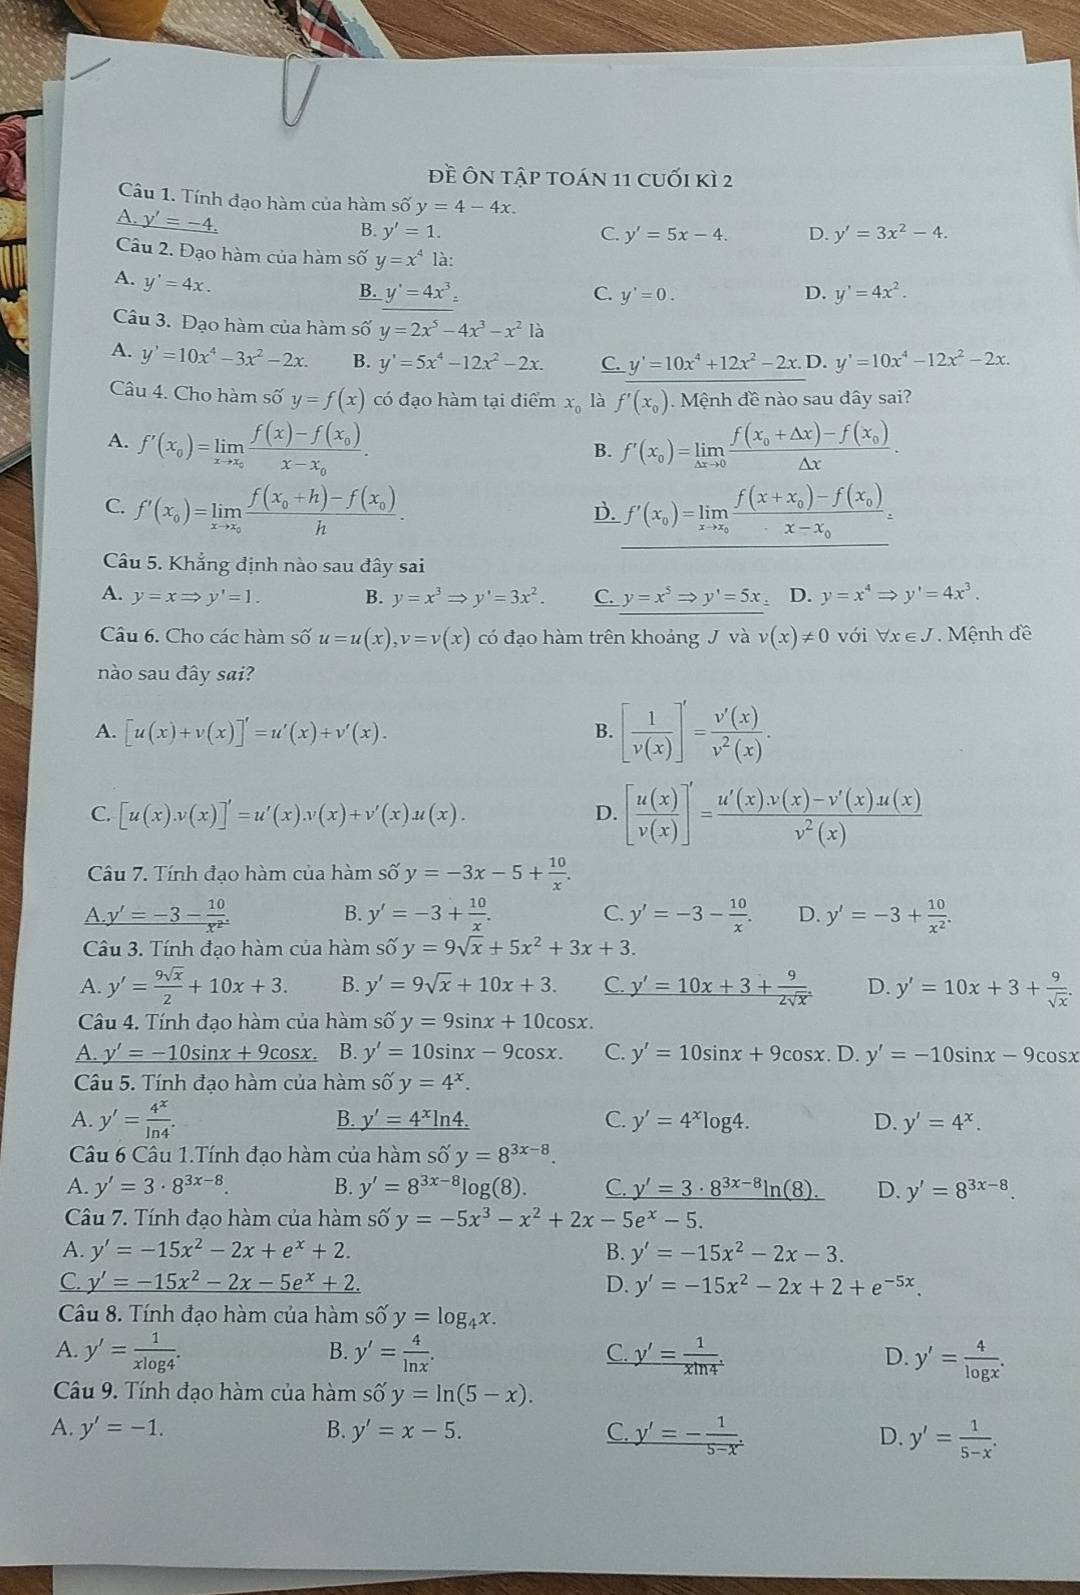 ĐỀ ÔN TẬP TOÁN 11 CUỐI KÌ 2
Câu 1. Tính đạo hàm của hàm số y = 4 − 4x.
A. y′ = −4. B. y′ = 1. C. y′ = 5x − 4. D. y′ = 3x² − 4.
Câu 2. Đạo hàm của hàm số y = x⁴ là:
A. y' = 4x. B. y' = 4x³. C. y' = 0. D. y' = 4x².
Câu 3. Đạo hàm của hàm số y = 2x⁵ − 4x³ − x² là
A. y' = 10x⁴ − 3x² − 2x. B. y' = 5x⁴ − 12x² − 2x. C. y' = 10x⁴ + 12x² − 2x. D. y' = 10x⁴ − 12x² − 2x.
Câu 4. Cho hàm số y = f(x) có đạo hàm tại điểm x₀ là f'(x₀). Mệnh đề nào sau đây sai?
A. f'(x₀) = lim_{x→x₀} (f(x) − f(x₀))/(x − x₀). B. f'(x₀) = lim_{Δx→0} (f(x₀ + Δx) − f(x₀))/Δx.
C. f'(x₀) = lim_{x→x₀} (f(x₀ + h) − f(x₀))/h. D. f'(x₀) = lim_{x→x₀} (f(x + x₀) − f(x₀))/(x − x₀).
Câu 5. Khẳng định nào sau đây sai
A. y = x ⇒ y' = 1. B. y = x³ ⇒ y' = 3x². C. y = x⁵ ⇒ y' = 5x. D. y = x⁴ ⇒ y' = 4x³.
Câu 6. Cho các hàm số u = u(x), v = v(x) có đạo hàm trên khoảng J và v(x) ≠ 0 với ∀x ∈ J. Mệnh đề
nào sau đây sai?
A. [u(x) + v(x)]′ = u′(x) + v′(x). B. [1/v(x)]′ = v′(x)/v²(x).
C. [u(x).v(x)]′ = u′(x).v(x) + v′(x).u(x). D. [u(x)/v(x)]′ = (u′(x).v(x) − v′(x).u(x))/v²(x)
Câu 7. Tính đạo hàm của hàm số y = −3x − 5 + 10/x.
A.y′ = −3 − 10/x². B. y′ = −3 + 10/x. C. y′ = −3 − 10/x. D. y′ = −3 + 10/x².
Câu 3. Tính đạo hàm của hàm số y = 9√x + 5x² + 3x + 3.
A. y′ = 9√x/2 + 10x + 3. B. y′ = 9√x + 10x + 3. C. y′ = 10x + 3 + 9/(2√x). D. y′ = 10x + 3 + 9/√x.
Câu 4. Tính đạo hàm của hàm số y = 9sinx + 10cosx.
A. y′ = −10sinx + 9cosx. B. y′ = 10sinx − 9cosx. C. y′ = 10sinx + 9cosx. D. y′ = −10sinx − 9cosx
Câu 5. Tính đạo hàm của hàm số y = 4ˣ.
A. y′ = 4ˣ/ln4. B. y′ = 4ˣln4. C. y′ = 4ˣlog4. D. y′ = 4ˣ.
Câu 6 Câu 1.Tính đạo hàm của hàm số y = 8³ˣ⁻⁸.
A. y′ = 3 · 8³ˣ⁻⁸. B. y′ = 8³ˣ⁻⁸log(8). C. y′ = 3 · 8³ˣ⁻⁸ln(8). D. y′ = 8³ˣ⁻⁸.
Câu 7. Tính đạo hàm của hàm số y = −5x³ − x² + 2x − 5eˣ − 5.
A. y′ = −15x² − 2x + eˣ + 2. B. y′ = −15x² − 2x − 3.
C. y′ = −15x² − 2x − 5eˣ + 2. D. y′ = −15x² − 2x + 2 + e⁻⁵ˣ.
Câu 8. Tính đạo hàm của hàm số y = log₄x.
A. y′ = 1/(xlog4). B. y′ = 4/lnx. C. y′ = 1/(xln4). D. y′ = 4/logx.
Câu 9. Tính đạo hàm của hàm số y = ln(5 − x).
A. y′ = −1. B. y′ = x − 5. C. y′ = −1/(5−x). D. y′ = 1/(5−x).